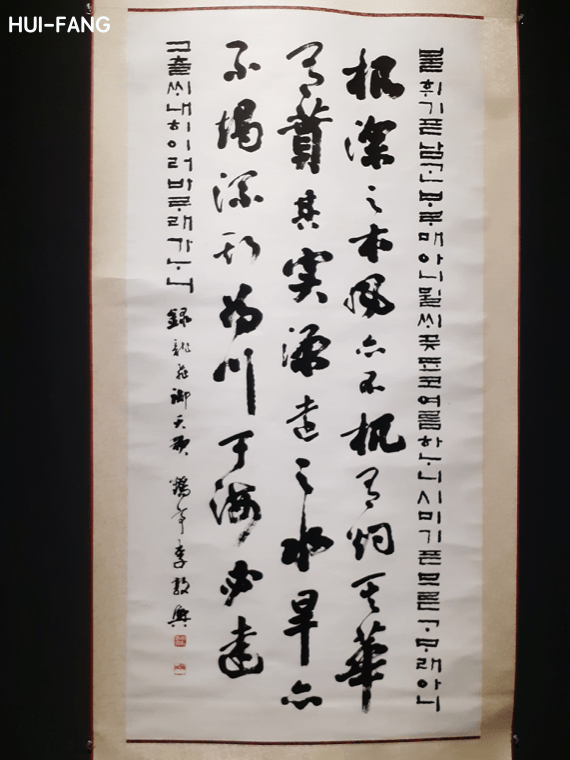 HUI-FANG
불휘기픈남ᄀᆞᆫᄇᆞᄅᆞ매아니뮐ᄊᆡ곶됴코여름하ᄂᆞ니ᄉᆡ미기픈므른ᄀᆞᄆᆞ래아니
根深之木風亦不扤有灼其華
有蕡其実源遠之水旱亦
不竭流斯為川于海必達
그츨ᄊᆡ내히이러바ᄅᆞ래가ᄂᆞ니 錄龍飛御天歌 鶴亭李敦興